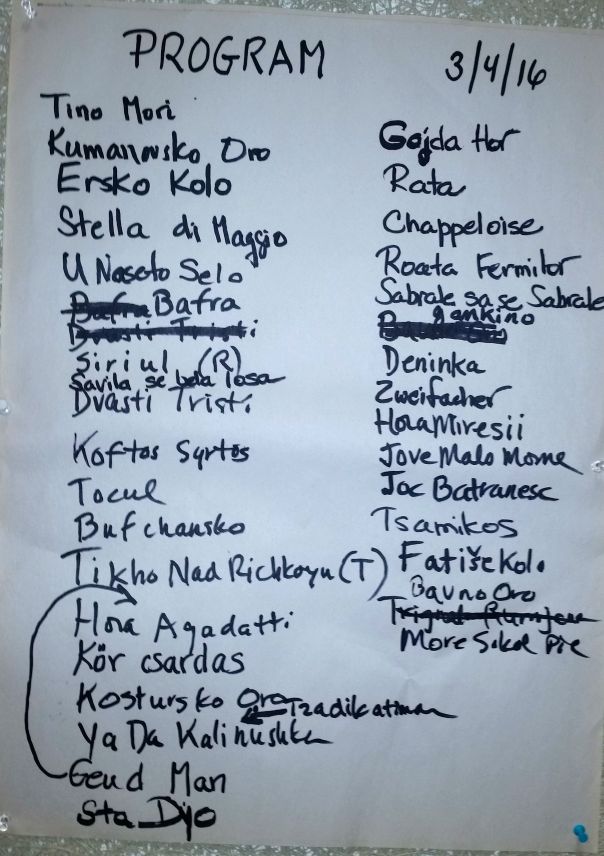 PROGRAM 3/4/16
Tino Mori
Kumanovsko Oro
Ersko Kolo
Stella di Maggio
U Nasoto Selo
Bafra Bafra
Dvasti Tristi
Siriul (R)
Savila se bela losa
Dvasti Tristi
Koftos Syrtos
Tocul
Bufchansko
Tikho Nad Richkoyu (T)
Hora Agadatti
Kör csardas
Kostursko Oro Tzadik atimar
Ya Da Kalinushke
Geud Man
Sta Dijo
Gajda Hor
Rata
Chappeloise
Roata Fermilor
Sabrale sa se Sabrale
gankino
Deninka
Zweifacher
Hora Miresii
Jove Malo Mome
Joc Batranesc
Tsamikos
Fatiše Kolo
Bavno Oro
More Sokol Pie